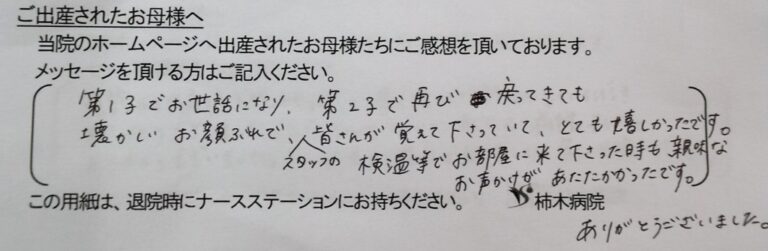 ご出産されたお母様へ
当院のホームページへ出産されたお母様たちにご感想を頂いております。
メッセージを頂ける方はご記入ください。
第1子でお世話になり、第2子で再び戻ってきても
懐かしい お顔ぶれで、スタッフの皆さんが覚えて下さっていて、とても嬉しかったです。
検温等でお部屋に来て下さった時も親味な
お声かけがあたたかかったです。
この用紙は、退院時にナースステーションにお持ちください。 柿木病院
ありがとうございました。